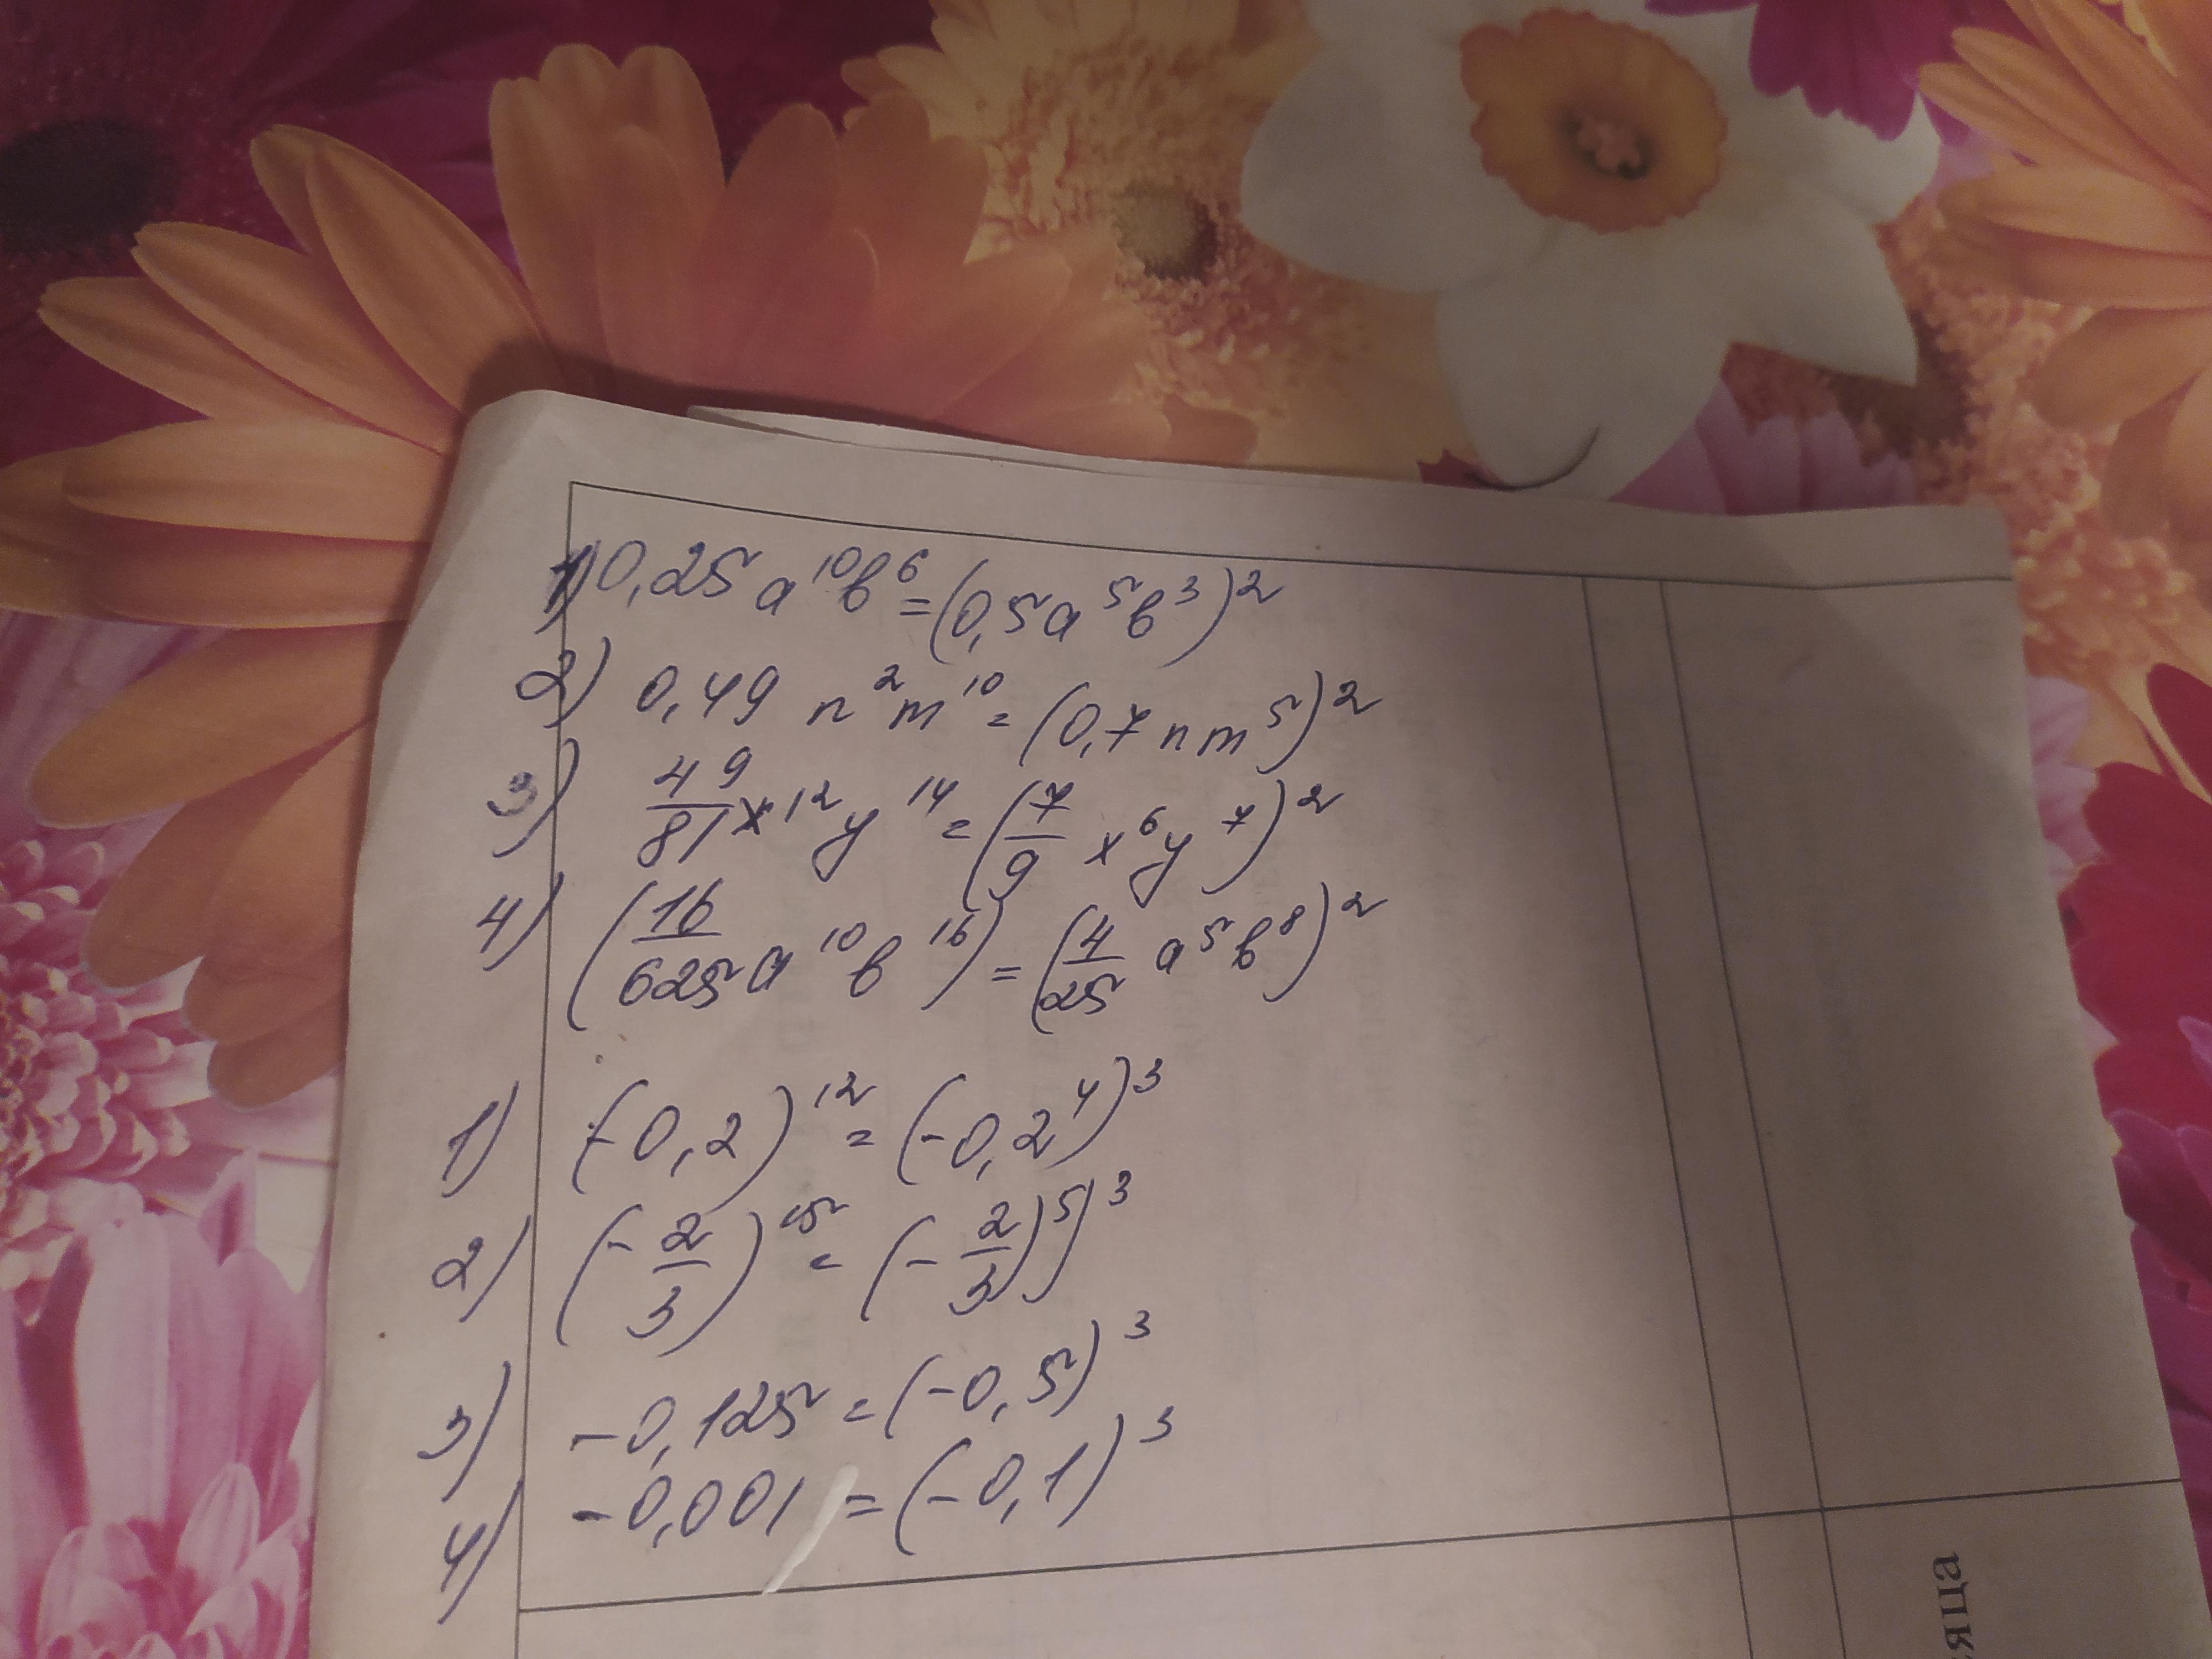 1) 0,25a¹⁰b⁶=(0,5a⁵b³)²
2) 0,49 n²m¹⁰=(0,7nm⁵)²
3) 49/81 x¹²y¹⁴=(7/9 x⁶y⁷)²
4) (16/625 a¹⁰b¹⁶)=(4/25 a⁵b⁸)²
1) (-0,2)¹²=(-0,2⁴)³
2) (-2/3)¹⁵=(-2/3)⁵)³
3) -0,125=(-0,5)³
4) -0,001=(-0,1)³
яца